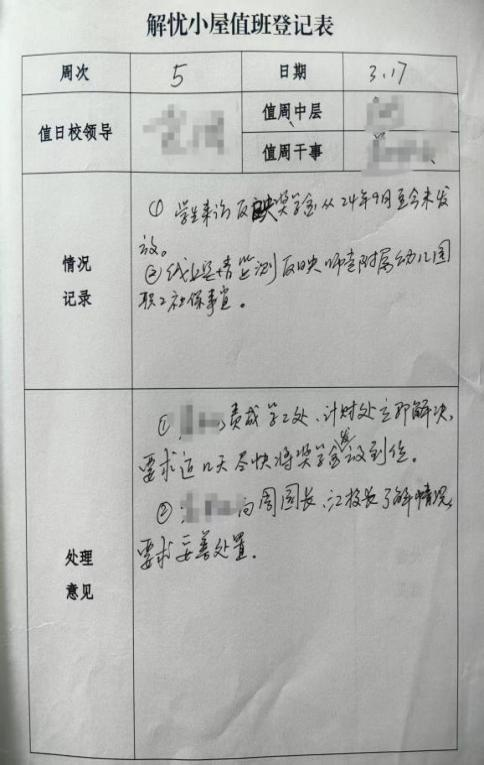 解忧小屋值班登记表
周次 5 日期 3.17
值日校领导 值周中层
值周干事
情况
记录
① 学生来访反映奖学金从24年9月至今未发
放。
② 线上舆情监测反映师专附属幼儿园
职工社保事宜。
处理
意见
① 责成学工处、计财处立即解决,
要求近几天尽快将奖学金发放到位。
② 向周园长、江校长了解情况,
要求妥善处置。